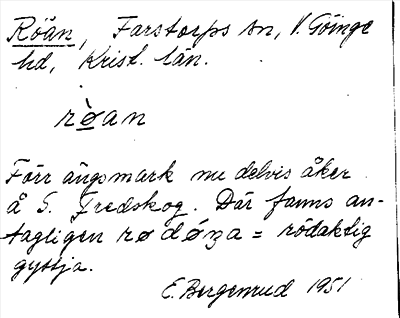 Röan, Farstorps sn, V. Göinge
hd, Krist. län.
rø̀an
Förr ängsmark nu delvis åker
å S. Fredskog. Där fanns an-
tagligen rødǿȥa = rödaktig
gyttja.
E. Bergenrud 1951